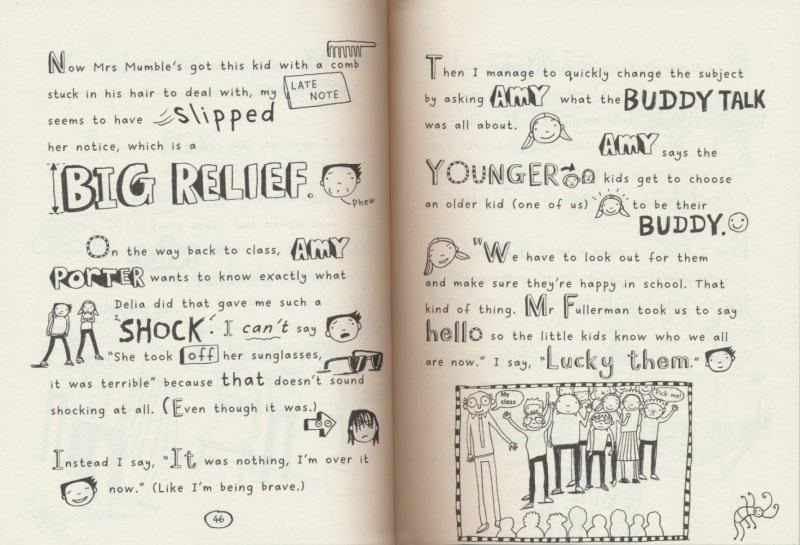 Now Mrs Mumble's got this kid with a comb
stuck in his hair to deal with, my LATE NOTE
seems to have Slipped
her notice, which is a
BIG RELIEF.
Phew
On the way back to class, AMY
PORTER wants to know exactly what
Delia did that gave me such a
'SHOCK'. I can't say
"She took off her sunglasses,
it was terrible" because that doesn't sound
shocking at all. (Even though it was.)
Instead I say, "It was nothing, I'm over it
now." (Like I'm being brave.)
46
Then I manage to quickly change the subject
by asking AMY what the BUDDY TALK
was all about.
AMY says the
YOUNGER kids get to choose
an older kid (one of us) to be their
BUDDY.
"We have to look out for them
and make sure they're happy in school. That
kind of thing. Mr Fullerman took us to say
hello so the little kids know who we all
are now." I say, "Lucky them."
My class
Pick me!